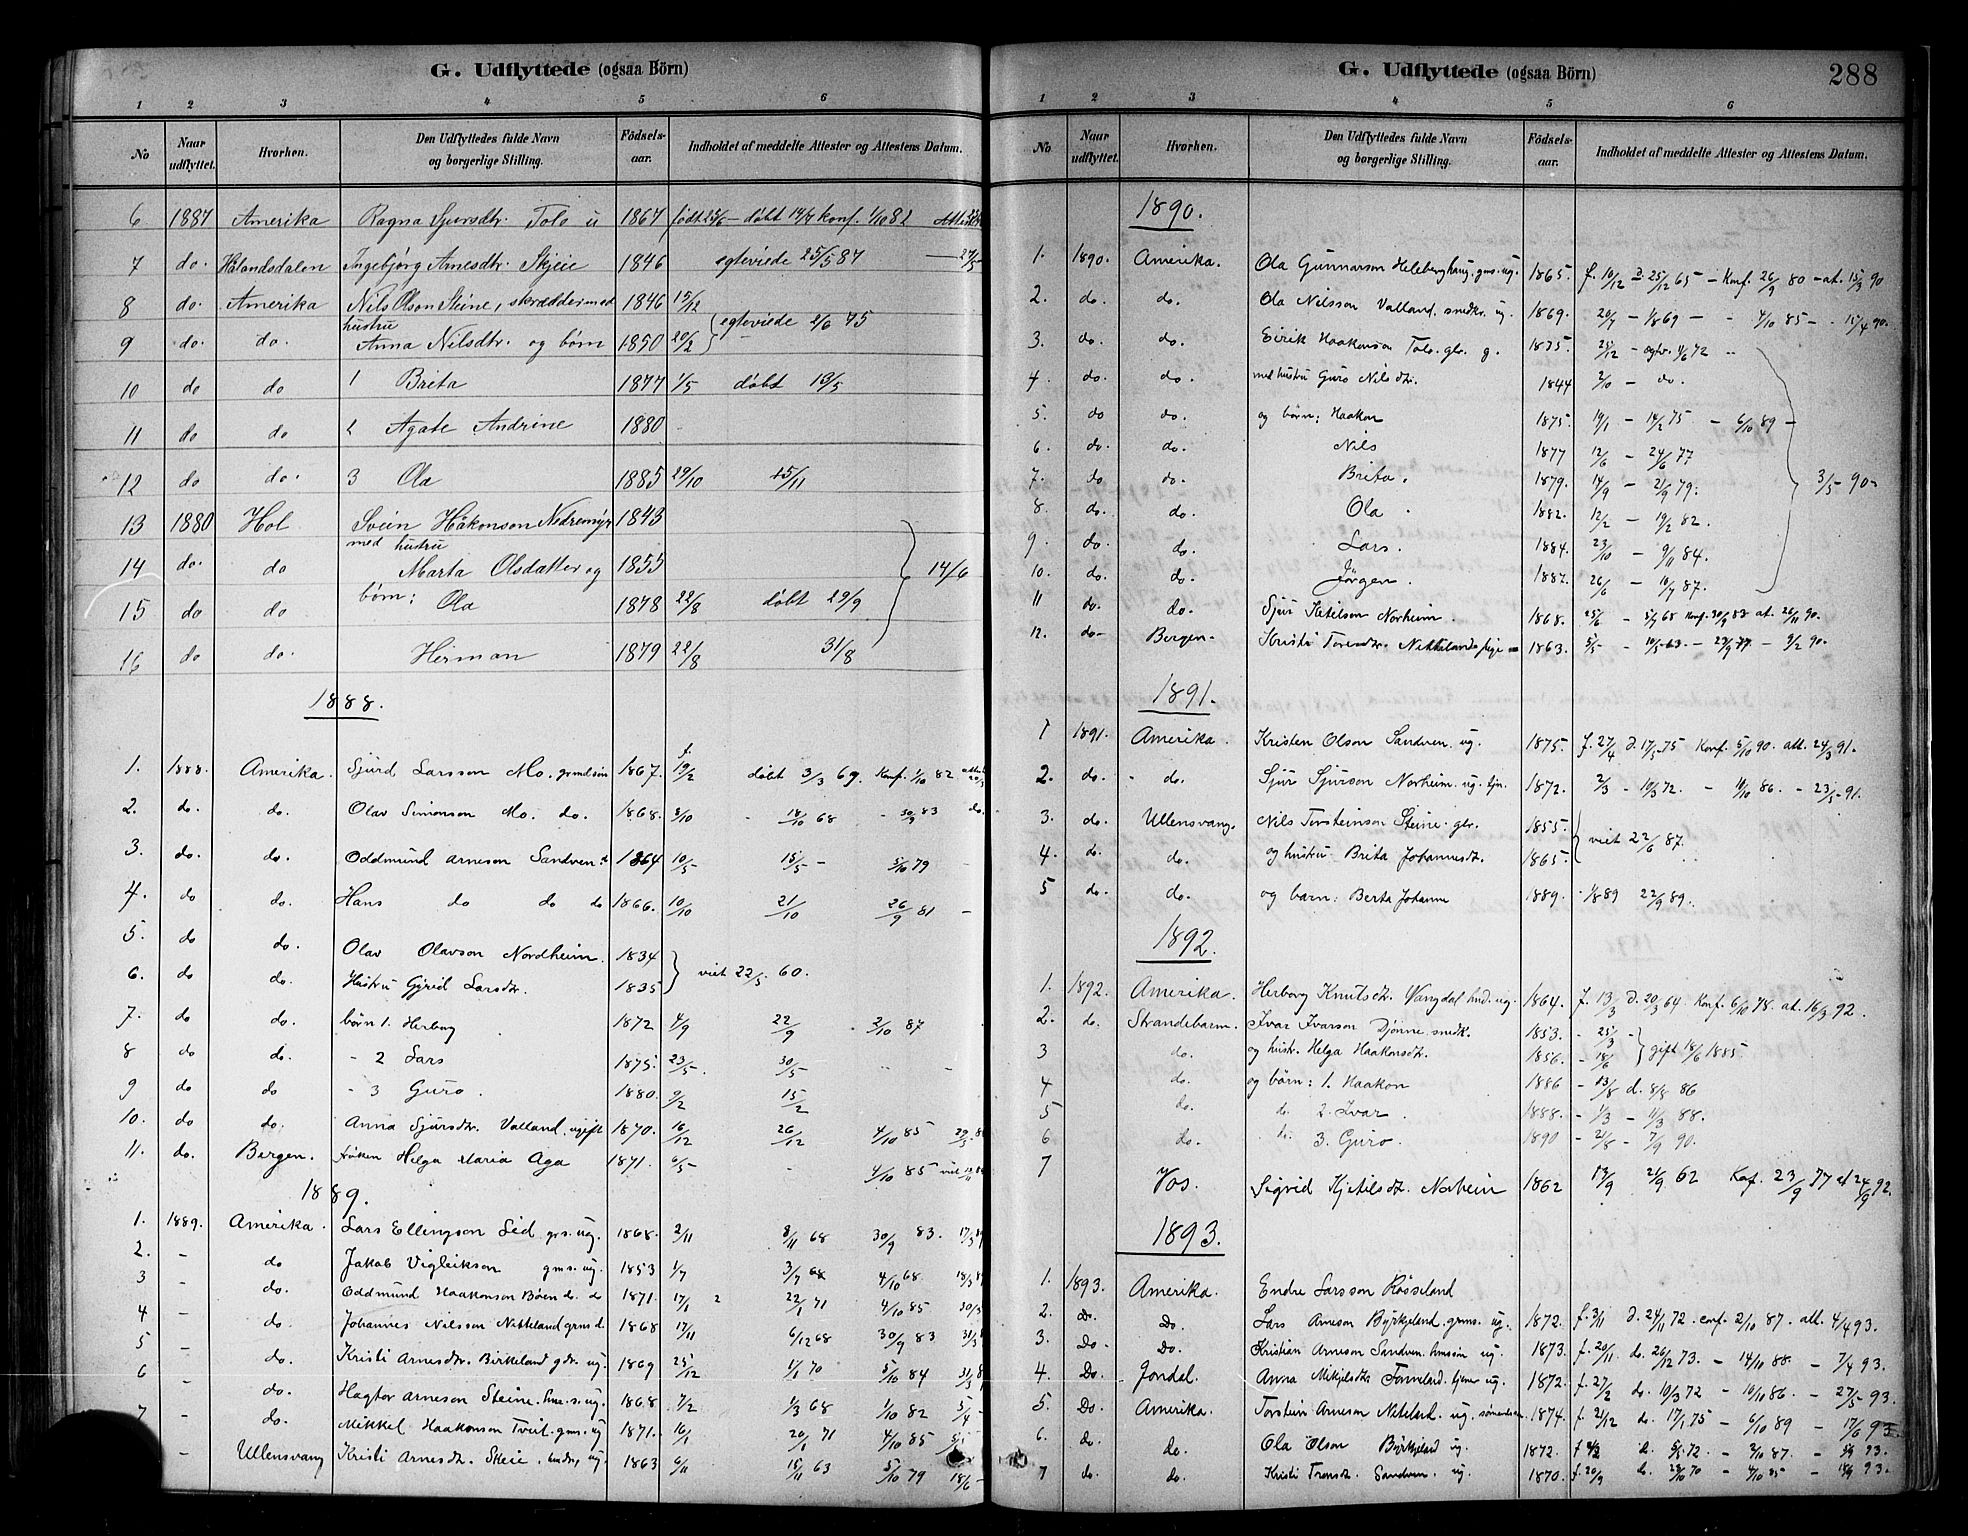 G. Udflyttede (ogsaa Börn)
1 2 3 4 5 6
No Naar udflyttet. Hvorhen. Den Udflyttedes fulde Navn og borgerlige Stilling. Födsels-aar. Indholdet af meddelte Attester og Attestens Datum.
6 1887 Amerika Ragna Sjursdtr. Tolo u 1867 født 25/6 - døbt 14/7 konf. 1/10 82
7 do. Hålandsdalen Ingebjörg Arnesdtr. Skjeie 1846 egteviede 25/5 87 - 27/5
8 do. Amerika Nils Olson Steine, skrædder med 1846 15/12
hustru egteviede 2/6 75
9 do. do. Anna Nilsdtr. og børn 1850 20/2
10 do do 1 Brita 1877 1/5 døbt 13/5
11 do do 2 Agate Andrine 1880
12 do do. 3 Ola 1885 29/10 15/11
13 1880 Hol Svein Håkonson Nedremyr 1843
med hustru
14 do. do Marta Olsdatter og 1855 14/6
børn:
15 do do Ola 1878 22/8 døbt 29/9
16 do do. Herman 1879 22/8 31/8
1888.
1. 1888. Amerika. Sjurd Larsson Mo. grmdsön 1867. f. 19/2 döbt 3/3 69. Konf. 1/10 82
2. do. do. Olav Simonson Mo. do. 1868. 3/10 - 18/10 68 - 30/9 83 do.
3. do. do. Oddmund Arneson Sandven 1864 10/5 15/5 - 5/10 79 -
4. do do. Hans do do do 1866. 10/10 21/10 26/9 81 -
5. do do. Olav Olavson Nordheim. 1834
6. do do. Hustru Gjörid Larsdtr. 1835 viet 22/5 60.
7. do do. börn 1. Herborg 1872 4/9 22/9 2/10 87
8 do do. - 2 Lars 1875. 23/5. 30/5
9 do do - 3 Guro. 1880. 9/2 15/2
10. do do. Anna Sjursdtr. Valland. ugift 1870. 16/12 26/12 4/10 85
11. do. Bergen. Fröken Helga Maria Aga 1871. 6/5 - 4/10 85
1889.
1. 1889. Amerika. Lars Ellingson Lid grs. ug. 1868. 2/11 8/11 68 30/9 83. 17/3
2. - do Jakob Vigleikson gms. ug. 1853 1/7 3/7 68 4/10 68 18/3
3 - do. Oddmund Haakonson Böen do. d 1871. 17/1 22/1 71 4/10 85 30/3
4 - do. Johannes Nilsson Nikkeland grmd. 1868 17/11 6/12 68 30/9 83 31/3
5 - do. Kristi Arnesdtr. Birkeland gdr. ug. 1869 25/12 1/1 70 5/10 84 31/3
6 - do. Hagtor Arneson Steine. hus. s. ug. 1868 7/2 1/3 68 1/10 82 3/4
7 - do. Mikkel Haakonson Tveit. gms. ug 1871. 16/1 20/1 71 4/10 85
- Ullensvang Kristi Arnesdt. Skeie. ug. 1863 6/11 15/11 63 5/10 79 18/6
G. Udflyttede (ogsaa Börn) 288
1 2 3 4 5 6
No Naar udflyttet. Hvorhen. Den Udflyttedes fulde Navn og borgerlige Stilling. Födsels-aar. Indholdet af meddelte Attester og Attestens Datum.
1890.
1. 1890. Amerika. Ola Gunnarson Heleberghaug. gms. ug. 1865. f. 10/12 D. 25/12 65 - Konf. 26/9 80 - at. 15/3 90
2. do. do. Ola Nilsson Valland. smedks. ug. 1869. 20/7 - 1/8 69 - - 4/10 85 - - 15/4 90.
3. do. do. Eirik Haakonson Tolo. gbr. g. 1875. 25/12 - egtev. 1/6 72
4. do. do. med hustru Guro Nilsdtr. 1844 2/10 - do.
5. do do. og börn: Haakon 1875. 19/1 - 14/2 75 - 6/10 89 -
6. do. do. Nils 1877 12/6 - 24/6 77
7. do do. Brita. 1879. 14/9 - 21/9 79. 3/5 - 90.
8. do. do. Ola 1882. 12/2 - 19/2 82.
9. do. do. Lars. 1884. 23/10 - 9/11 84.
10. do. do. Jörgen. 1887. 26/6 - 10/7 87.
11 do. do. Sjur Ketilson Norheim. 1868. 25/6 - 5/7 68 Konf. 30/9 83 at. 26/11 90.
12. do- Bergen. Kristi Toresdtr. Nikkeland pige 1863. 5/5 - 10/5 63 - 23/9 77 - 3/2 90.
1891.
1 1891. Amerika. Kristen Olson Sandven. ug. 1875. f. 27/4 D. 17/5 75 Konf. 5/10 90. att. 24/3 91.
2. do. - do. Sjur Sjurson Norheim. ug. tjn. 1872. 2/3 - 10/3 72. - 10/10 86. - 23/5 91.
3. do. Ullensvang. Nils Torsteinson Steine. gbr. 1855. viet 22/6 87.
4. do. do. og hustru Brita Johannesdt. 1865.
5 do. do. og barn: Berta Johanne 1889. - 1/8 89 22/9 89.
1892.
1. 1892. Amerika. Herborg Knutsdt. Vangdal hud. ug. 1864. f. 13/3 D. 20/3 64. Konf. 6/10 78. at. 16/3 92.
2. do. Strandebarm. Ivar Ivarson Djönne smedk. 1853. - 25/3
3 do. og hustr. Helga Haakonsdt. 1856. - 18/6 gift 18/6 1885
4 do. og börn: 1. Haakon 1886 - 13/8 d. 8/8 86
5 do. do. 2. Ivar. 1888. - 1/3 - 11/3 88.
6 do. do. 3. Guro. 1890 - 21/8 - 7/9 90.
7 Vos. Sigrid Kjetilsdt. Norheim 1862 13/9 21/9 62 Kof. 23/9 77 at 24/9 92.
1893.
1. 1893. Amerika. Endre Larsson Rösseland
2. Do. Do. Lars Arneson Byrkjeland. grms. ug. 1872. f. 3/11 D. 24/11 72. conf. 2/10 87. att. 4/4 93.
3. Do. Do. Kristian Arneson Sandven. hmssön ug. 1873. f. 20/11 do. 26/12 73. - 14/10 88. - 7/4 93.
4. Do. Jondal. Anna Mikjelsdtr. tjener ug. 1872. f. 27/2 do. 10/3 72 - 10/10 86. - 27/5 93.
5. Do. Amerika. Torstein Arneson Nikeland. ug. 1874. f. 21/12 do. 17/1 75 - 6/10 89 - 17/6 93.
6. do. do. Ola Olson Byrkjeland ug. 1872. f 4/3 d. 5/5 72. - 2/10 87. - 93.
7 do. do. Kristi Tronsdt. Sandven. ug. 1870. f. 20/9 do. 23/10 70 - 4/10 85 - 18/9 93.